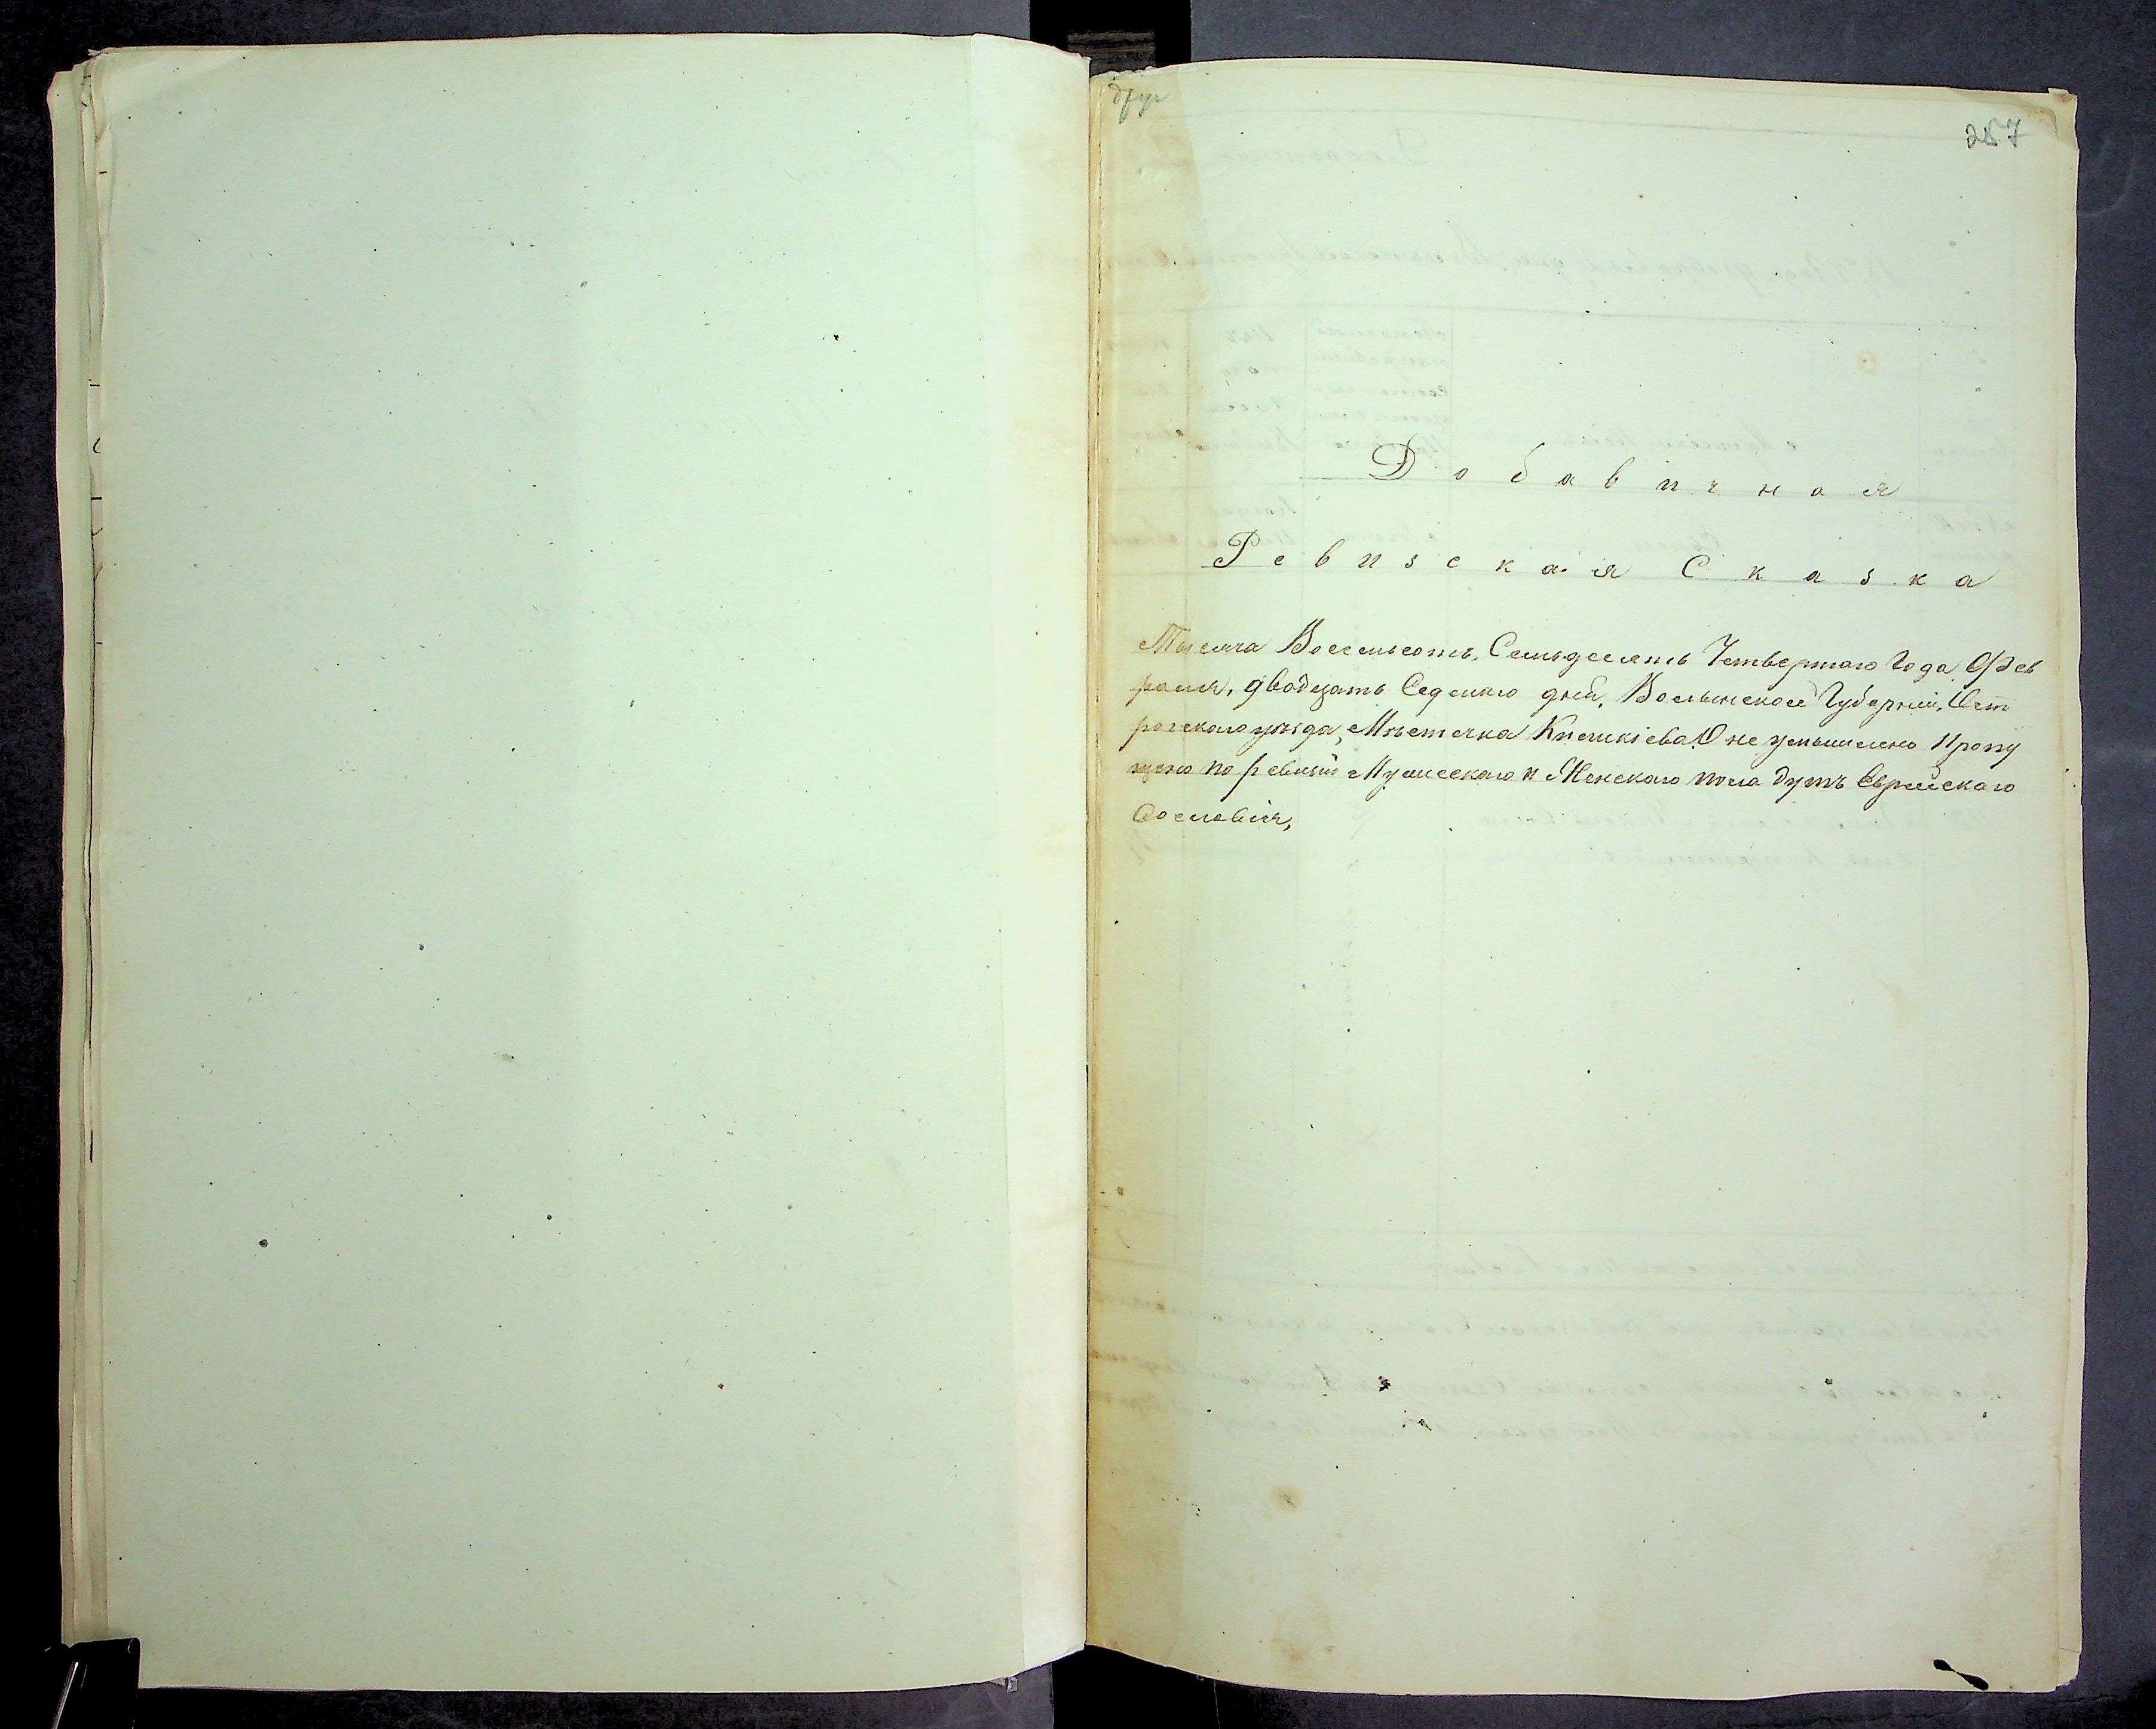 257
Добавичная
Ревизская Сказка
Тысяча Восемьсотъ, Семьдесятъ Четвертаго Года, Фев
раля, двадцать Седмаго дней, Волынской Губерніи, Ост
рогскаго уѣзда, Мѣстечка Кн О не умышлено Пропу
щено по ревизіи Мужескаго и Женскаго пола дутъ Еврейскаго
Сословія,